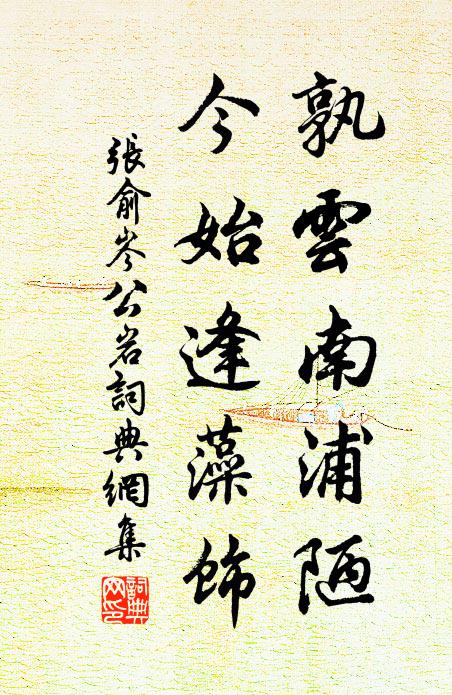 孰雲南浦陋
今始逢藻飾
張俞岑公岩詞典網集
詞典網印